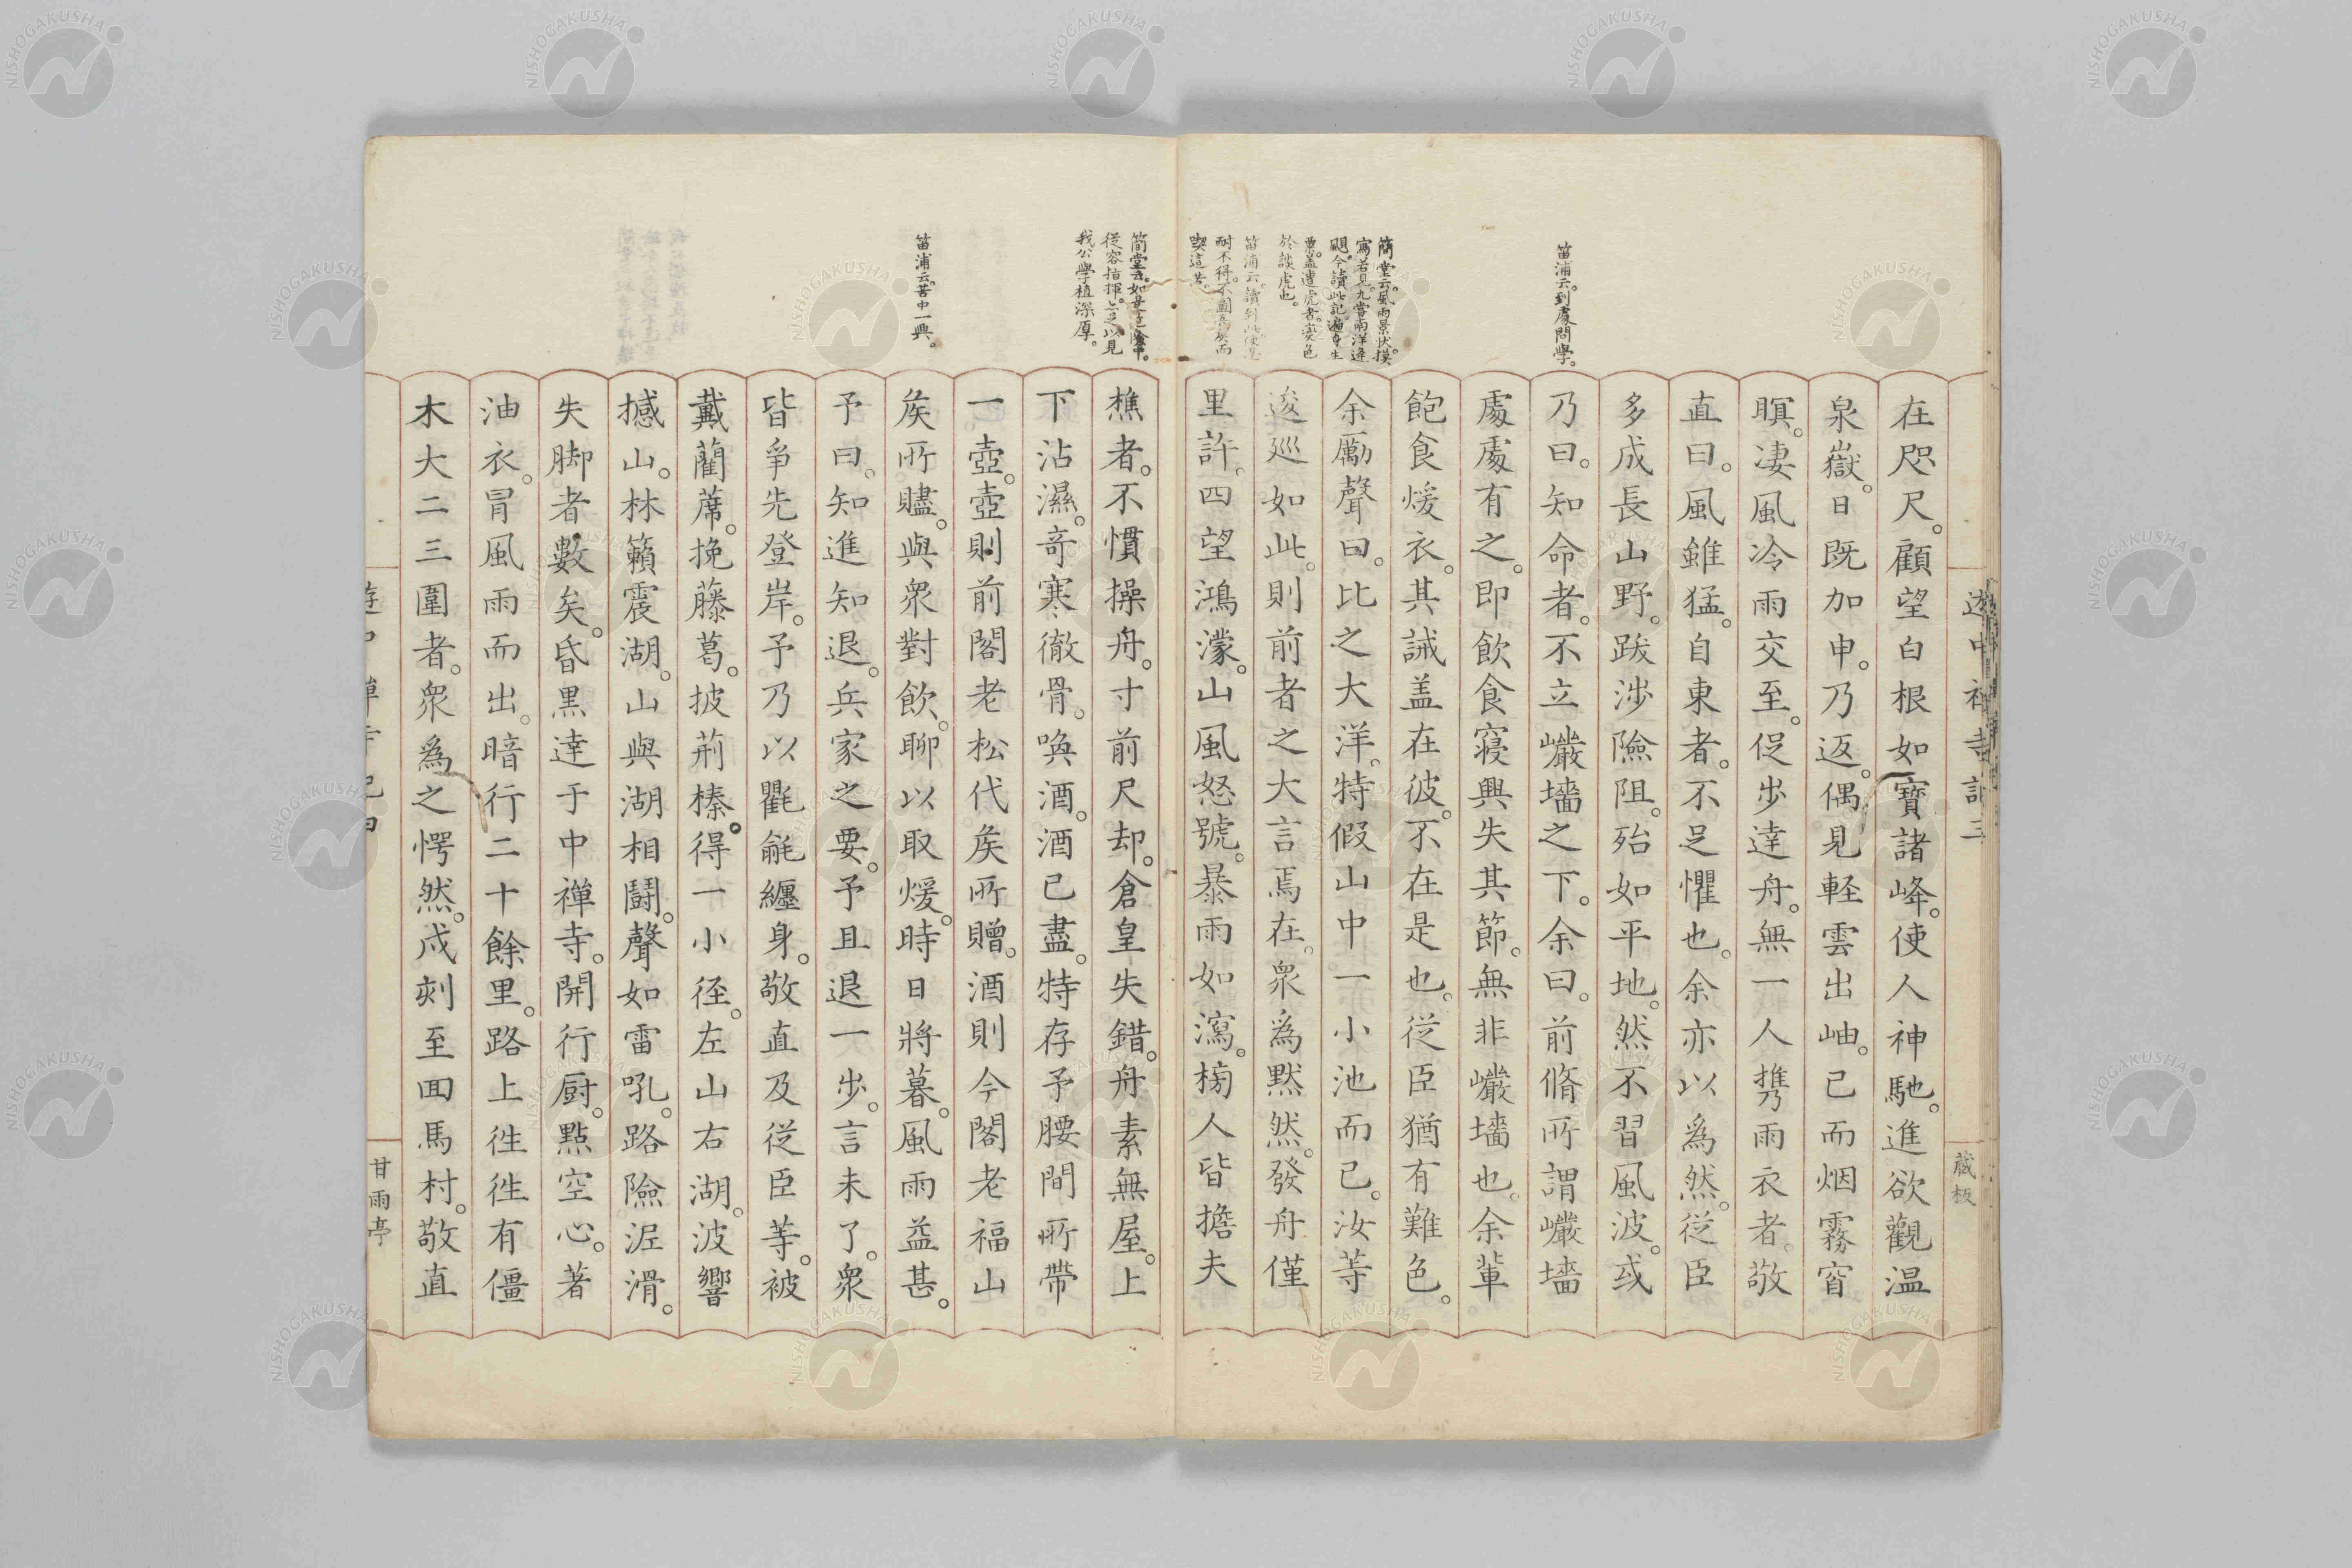 遊中禅寺記三
蔵板
笛浦云。到處問學。
簡堂云。風雨景状摸
寫若見。九嘗南洋逢
颶。今讀此記。遍身生
粟。盖遭虎者。変色
於談虎也。
笛浦云。讀到此。便
耐不得。不圖
喫這苦。
在咫尺。顧望白根如寶諸峰。使人神馳。進欲觀温
泉嶽。日既加申。乃返。偶見軽雲出岫。已而烟霧窅
暝。凄風冷雨交至。促歩達舟。無一人携雨衣者。敬
直曰。風雖猛。自東者。不足懼也。余亦以為然。従臣
多成長山野。跋渉險阻。殆如平地。然不習風波。或
乃曰。知命者。不立巖墻之下。余曰。前脩所謂巖墻
處處有之。即飲食寝興失其節。無非巖墻也。余輩
飽食煖衣。其誡盖在彼。不在是也。従臣猶有難色。
余厲聲曰。比之大洋。特假山中一小池而已。汝等
逡巡如此。則前者之大言焉在。衆為黙然。發舟僅
里許。四望鴻濛。山風怒號。暴雨如瀉。榜人皆擔夫
簡堂云。如
従容指揮。亦足以見
我公學植深厚。
笛浦云。苦中一興。
樵者。不慣操舟。寸前尺却。倉皇失錯。舟素無屋。上
下沾濕。奇寒徹骨。喚酒。酒已盡。特存予腰間所帶
一壺。壺則前閣老松代矦所贈。酒則今閣老福山
矦所贐。與衆對飲。聊以取煖。時日將暮。風雨益甚。
予曰。知進知退。兵家之要。予且退一歩。言未了。衆
皆爭先登岸。予乃以氍毹纏身。敬直及従臣等。被
戴藺蓆。挽藤葛。披荊榛。得一小径。左山右湖。波響
撼山。林籟震湖。山與湖相鬪。聲如雷吼。路險泥滑。
失脚者數矣。昏黒達于中禅寺。開行厨。點空心。著
油衣。冒風雨而出。暗行二十餘里。路上徃徃有僵
木大二三圍者。衆為之愕然。戌刻至回馬村。敬直
甘雨亭